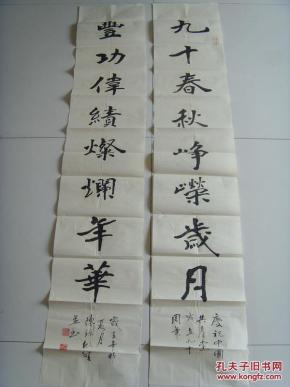 九十春秋峥嶸歲月
慶祝中國
共產黨
成立九十
周年
豐功偉績燦斕年華